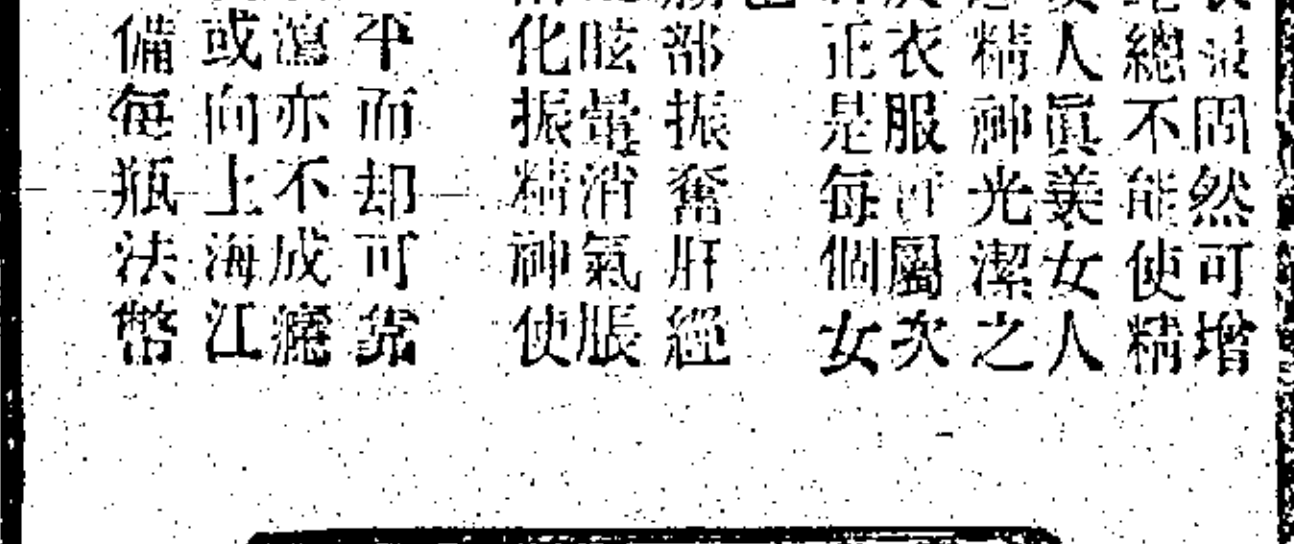 固然可增
總不能使精
人眞美女人
精神光潔之
衣服可屬次
正是每個女
部振奮肝經
眩暈消氣脹
化振精神使
平而却可
亦不成癮
或向上海江
備每瓶法幣